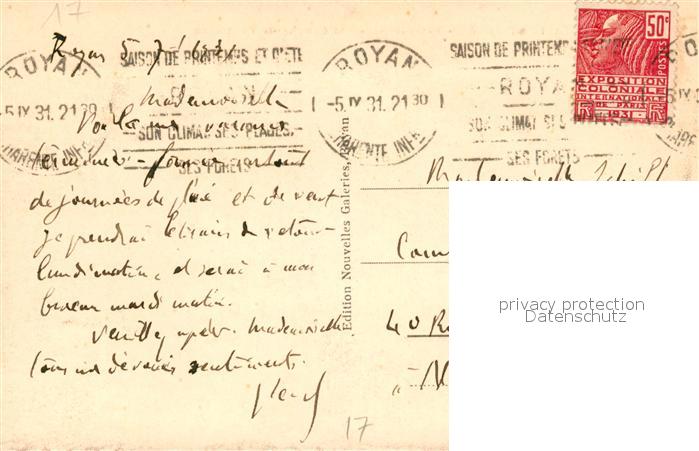 17
Royan 5-7-1931
ROYAN
-5 IX 31. 21 30
CHARENTE INFRE
SAISON DE PRINTEMPS ET D'ETE
ROYAN
SON CLIMAT SES PLAGES
SES FORETS
ROYAN
-5. IX 31. 21 30
CHARENTE INFRE
SAISON DE PRINTEMPS
ROYAN
SON CLIMAT SES PLAGES
SES FORETS
50c
POSTES
EXPOSITION
COLONIALE
INTERNATIONALE
DE PARIS
1931
Mademoiselle
Voilà
terminées
de journées de pluie et de vent
je prendrai le train de retour
lundi matin, et serai à mon
bureau mardi matin.
Veuillez agréer Mademoiselle
tous mes dévoués sentiments.
17
Edition Nouvelles Galeries, Royan
Mademoiselle
40 R
à N
privacy protection
Datenschutz